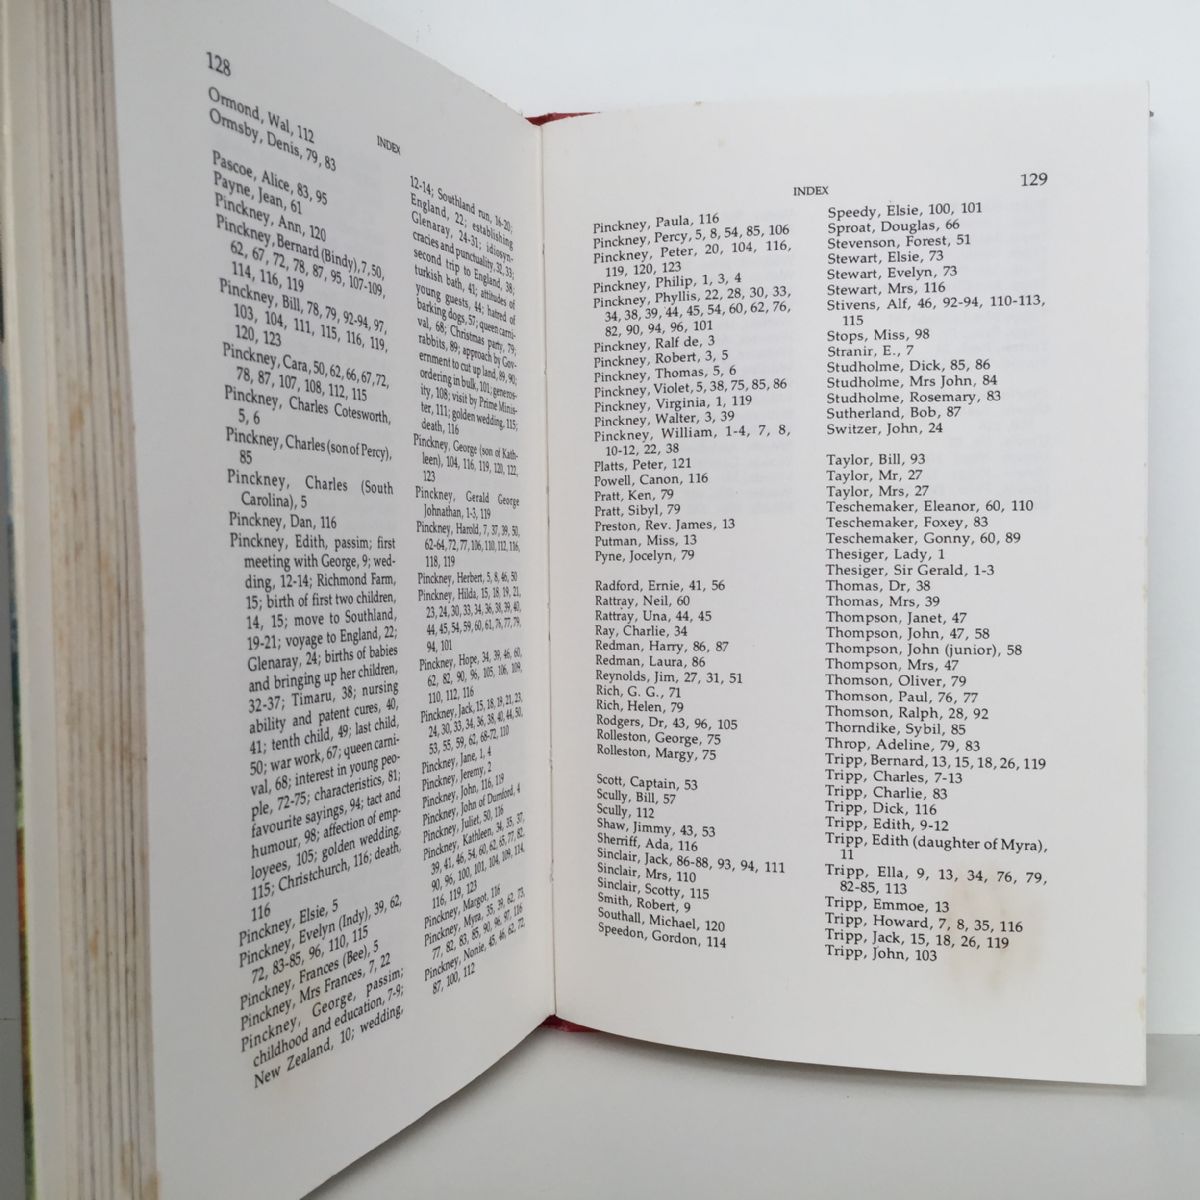 128
INDEX
Ormond, Wal, 112
Ormsby, Denis, 79, 83
Pascoe, Alice, 83, 95
Payne, Jean, 61
Pinckney, Ann, 120
Pinckney, Bernard (Bindy), 7, 50,
62, 67, 72, 78, 87, 95, 107-109,
114, 116, 119
Pinckney, Bill, 78, 79, 92-94, 97,
103, 104, 111, 115, 116, 119,
120, 123
Pinckney, Cara, 50, 62, 66, 67, 72,
78, 87, 107, 108, 112, 115
Pinckney, Charles Cotesworth,
5, 6
Pinckney, Charles (son of Percy),
85
Pinckney, Charles (South
Carolina), 5
Pinckney, Dan, 116
Pinckney, Edith, passim; first
meeting with George, 9; wed-
ding, 12-14; Richmond Farm,
15; birth of first two children,
14, 15; move to Southland,
19-21; voyage to England, 22;
Glenaray, 24; births of babies
and bringing up her children,
32-37; Timaru, 38; nursing
ability and patent cures, 40,
41; tenth child, 49; last child,
50; war work, 67; queen carni-
val, 68; interest in young peo-
ple, 72-75; characteristics, 81;
favourite sayings, 94; tact and
humour, 98; affection of emp-
loyees, 105; golden wedding,
115; Christchurch, 116; death,
116
Pinckney, Elsie, 5
Pinckney, Evelyn (Indy), 39, 62,
72, 83-85, 96, 110, 115
Pinckney, Frances (Bee), 5
Pinckney, Mrs Frances, 7, 22
Pinckney, George, passim;
childhood and education, 7-9;
New Zealand, 10; wedding,
12-14; Southland run, 16-20;
England, 22; establishing
Glenaray, 24-31; idiosyn-
cracies and punctuality, 32, 33;
second trip to England, 38;
turkish bath, 41; attitudes of
young guests, 44; hatred of
barking dogs, 57; queen carni-
val, 68; Christmas party, 79;
rabbits, 89; approach by Gov-
ernment to cut up land, 89, 90;
ordering in bulk, 101; generos-
ity, 108; visit by Prime Minis-
ter, 111; golden wedding, 115;
death, 116
Pinckney, George (son of Kath-
leen), 104, 116, 119, 120, 122,
123
Pinckney, Gerald George
Johnathan, 1-3, 119
Pinckney, Harold, 7, 37, 39, 50,
62-64, 72, 77, 106, 110, 112, 116,
118, 119
Pinckney, Herbert, 5, 8, 46, 50
Pinckney, Hilda, 15, 18, 19, 21,
23, 24, 30, 33, 34, 36, 38, 39, 40,
44, 45, 54, 59, 60, 61, 76, 77, 79,
94, 101
Pinckney, Hope, 34, 39, 46, 60,
62, 82, 90, 96, 105, 106, 109,
110, 112, 116
Pinckney, Jack, 15, 18, 19, 21, 23,
24, 30, 33, 34, 36, 38, 40, 44, 50,
53, 55, 59, 62, 68-72, 110
Pinckney, Jane, 1, 4
Pinckney, Jeremy, 2
Pinckney, John, 116, 119
Pinckney, John of Durnford, 4
Pinckney, Juliet, 50, 116
Pinckney, Kathleen, 34, 35, 37,
39, 41, 46, 54, 60, 62, 65, 77, 82,
90, 96, 100, 101, 104, 109, 114,
116, 119, 123
Pinckney, Margot, 116
Pinckney, Myra, 35, 39, 62, 73,
77, 82, 83, 85, 90, 96, 97, 116
Pinckney, Nonie, 45, 46, 62, 72,
87, 100, 112
INDEX
129
Pinckney, Paula, 116
Pinckney, Percy, 5, 8, 54, 85, 106
Pinckney, Peter, 20, 104, 116,
119, 120, 123
Pinckney, Philip, 1, 3, 4
Pinckney, Phyllis, 22, 28, 30, 33,
34, 38, 39, 44, 45, 54, 60, 62, 76,
82, 90, 94, 96, 101
Pinckney, Ralf de, 3
Pinckney, Robert, 3, 5
Pinckney, Thomas, 5, 6
Pinckney, Violet, 5, 38, 75, 85, 86
Pinckney, Virginia, 1, 119
Pinckney, Walter, 3, 39
Pinckney, William, 1-4, 7, 8,
10-12, 22, 38
Platts, Peter, 121
Powell, Canon, 116
Pratt, Ken, 79
Pratt, Sibyl, 79
Preston, Rev. James, 13
Putman, Miss, 13
Pyne, Jocelyn, 79
Radford, Ernie, 41, 56
Rattray, Neil, 60
Rattray, Una, 44, 45
Ray, Charlie, 34
Redman, Harry, 86, 87
Redman, Laura, 86
Reynolds, Jim, 27, 31, 51
Rich, G. G., 71
Rich, Helen, 79
Rodgers, Dr, 43, 96, 105
Rolleston, George, 75
Rolleston, Margy, 75
Scott, Captain, 53
Scully, Bill, 57
Scully, 112
Shaw, Jimmy, 43, 53
Sherriff, Ada, 116
Sinclair, Jack, 86-88, 93, 94, 111
Sinclair, Mrs, 110
Sinclair, Scotty, 115
Smith, Robert, 9
Southall, Michael, 120
Speedon, Gordon, 114
Speedy, Elsie, 100, 101
Sproat, Douglas, 66
Stevenson, Forest, 51
Stewart, Elsie, 73
Stewart, Evelyn, 73
Stewart, Mrs, 116
Stivens, Alf, 46, 92-94, 110-113,
115
Stops, Miss, 98
Stranir, E., 7
Studholme, Dick, 85, 86
Studholme, Mrs John, 84
Studholme, Rosemary, 83
Sutherland, Bob, 87
Switzer, John, 24
Taylor, Bill, 93
Taylor, Mr, 27
Taylor, Mrs, 27
Teschemaker, Eleanor, 60, 110
Teschemaker, Foxey, 83
Teschemaker, Gonny, 60, 89
Thesiger, Lady, 1
Thesiger, Sir Gerald, 1-3
Thomas, Dr, 38
Thomas, Mrs, 39
Thompson, Janet, 47
Thompson, John, 47, 58
Thompson, John (junior), 58
Thompson, Mrs, 47
Thomson, Oliver, 79
Thomson, Paul, 76, 77
Thomson, Ralph, 28, 92
Thorndike, Sybil, 85
Throp, Adeline, 79, 83
Tripp, Bernard, 13, 15, 18, 26, 119
Tripp, Charles, 7-13
Tripp, Charlie, 83
Tripp, Dick, 116
Tripp, Edith, 9-12
Tripp, Edith (daughter of Myra),
11
Tripp, Ella, 9, 13, 34, 76, 79,
82-85, 113
Tripp, Emmoe, 13
Tripp, Howard, 7, 8, 35, 116
Tripp, Jack, 15, 18, 26, 119
Tripp, John, 103